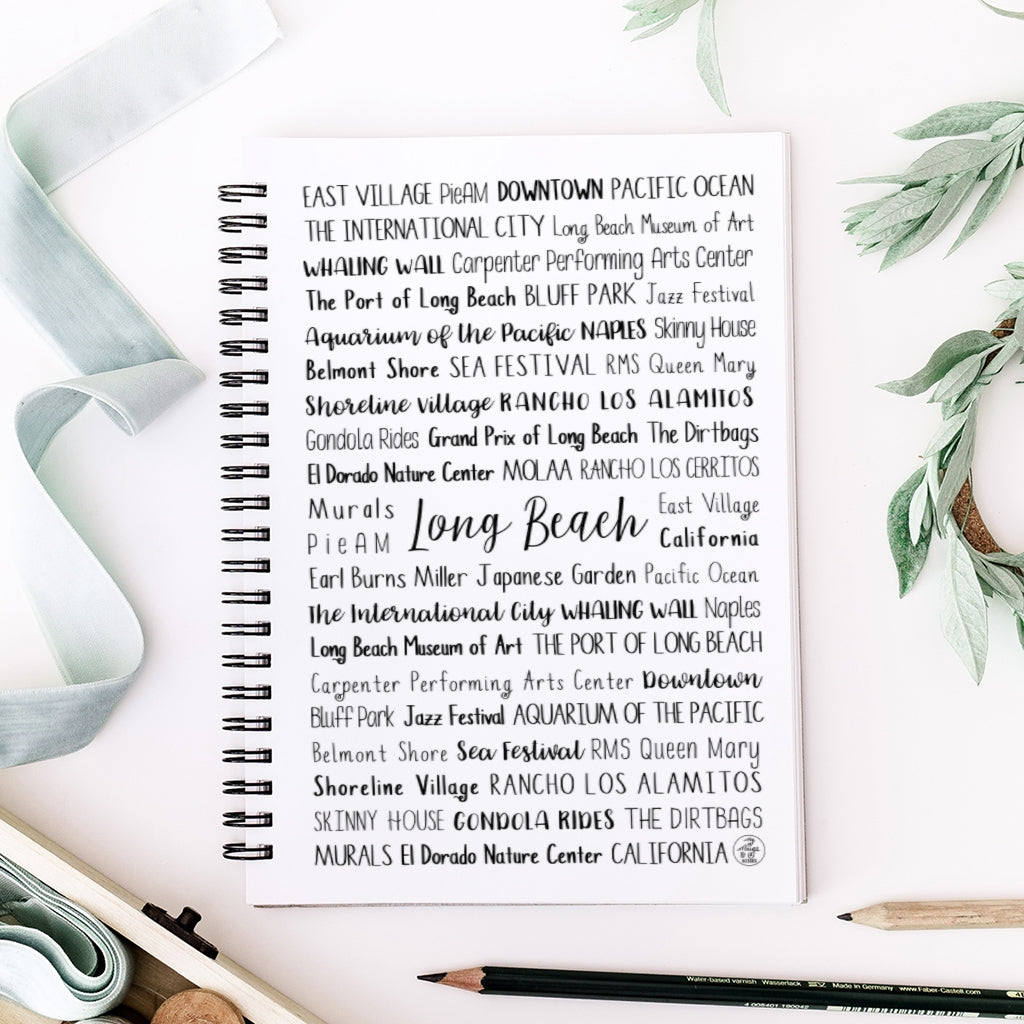 EAST VILLAGE PieAM DOWNTOWN PACIFIC OCEAN
THE INTERNATIONAL CITY Long Beach Museum of Art
WHALING WALL Carpenter Performing Arts Center
The Port of Long Beach BLUFF PARK Jazz Festival
Aquarium of the Pacific NAPLES Skinny House
Belmont Shore SEA FESTIVAL RMS Queen Mary
Shoreline Village RANCHO LOS ALAMITOS
Gondola Rides Grand Prix of Long Beach The Dirtbags
El Dorado Nature Center MOLAA RANCHO LOS CERRITOS
Murals
PieAM
Long Beach
East Village
California
Earl Burns Miller Japanese Garden Pacific Ocean
The International City WHALING WALL Naples
Long Beach Museum of Art THE PORT OF LONG BEACH
Carpenter Performing Arts Center Downtown
Bluff Park Jazz Festival AQUARIUM OF THE PACIFIC
Belmont Shore Sea Festival RMS Queen Mary
Shoreline Village RANCHO LOS ALAMITOS
SKINNY HOUSE GONDOLA RIDES THE DIRTBAGS
MURALS El Dorado Nature Center CALIFORNIA
Water-based varnish Wasserlack Made in Germany www.Faber-Castell.com
4 005401 190042